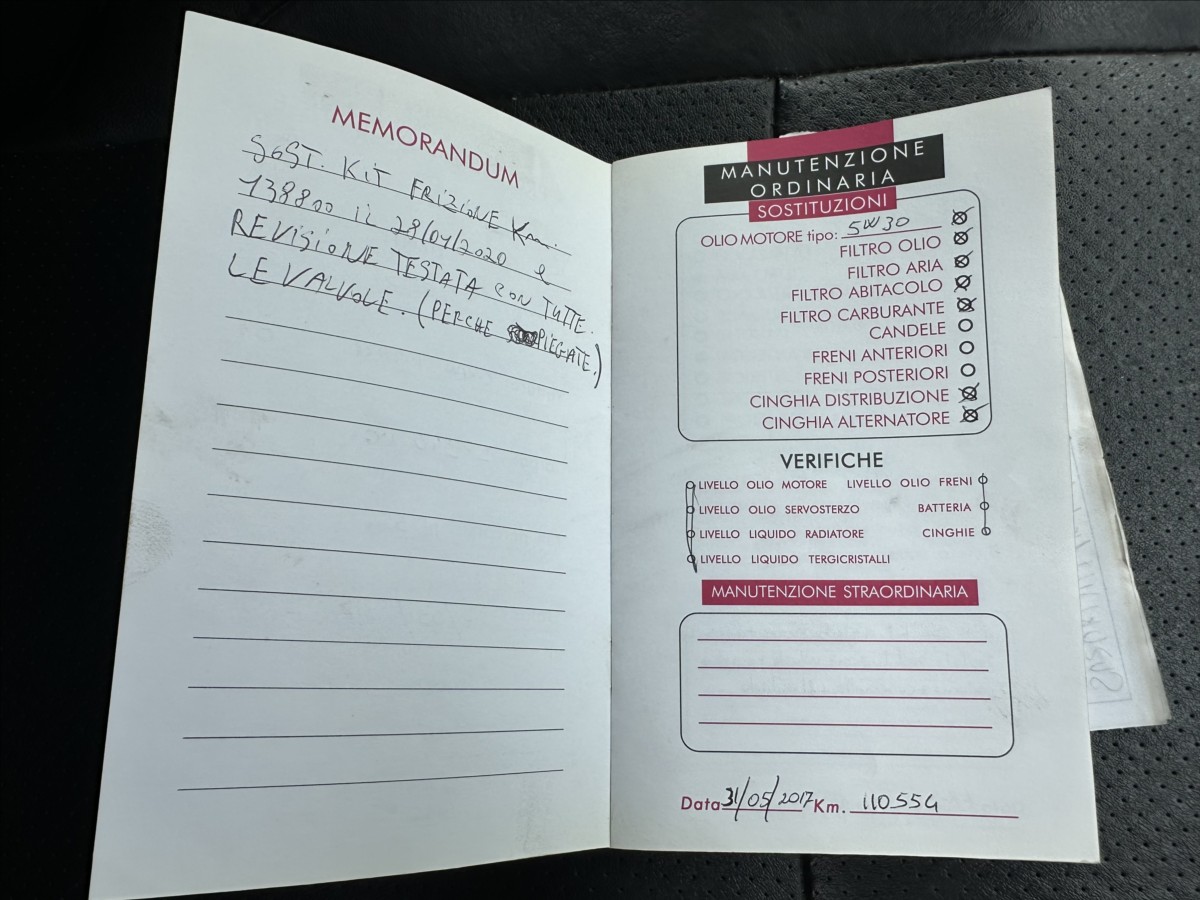 MEMORANDUM
SOST. KIT FRIZIONE Km.
138800 il 28/04/2020 e
REVISIONE TESTATA CON TUTTE
LE VALVOLE. (PERCHE PIEGATE.)
MANUTENZIONE
ORDINARIA
SOSTITUZIONI
OLIO MOTORE tipo: 5W30
FILTRO OLIO
FILTRO ARIA
FILTRO ABITACOLO
FILTRO CARBURANTE
CANDELE
FRENI ANTERIORI
FRENI POSTERIORI
CINGHIA DISTRIBUZIONE
CINGHIA ALTERNATORE
VERIFICHE
LIVELLO OLIO MOTORE LIVELLO OLIO FRENI
LIVELLO OLIO SERVOSTERZO BATTERIA
LIVELLO LIQUIDO RADIATORE CINGHIE
LIVELLO LIQUIDO TERGICRISTALLI
MANUTENZIONE STRAORDINARIA
Data 31/05/2017 Km. 110554